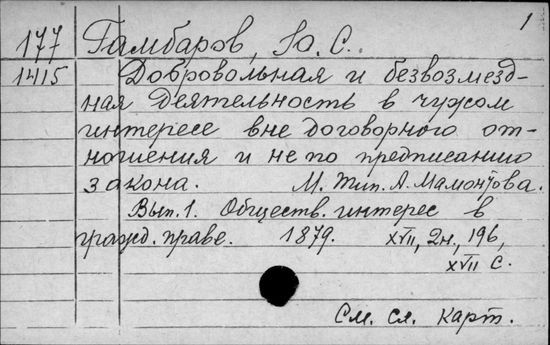 1
177 Гамбаров, Ю. С.
1415 Добровольная и безвозмезд-
ная деятельность в чужом
интересе вне договорного от-
ношения и не по предписанию
закона. М. Тип. А. Мамонтова.
Вып. 1. Обществ. интерес в
гражд. праве. 1879. XVII, 2н., 196,
XVII с.
См. сл. карт.